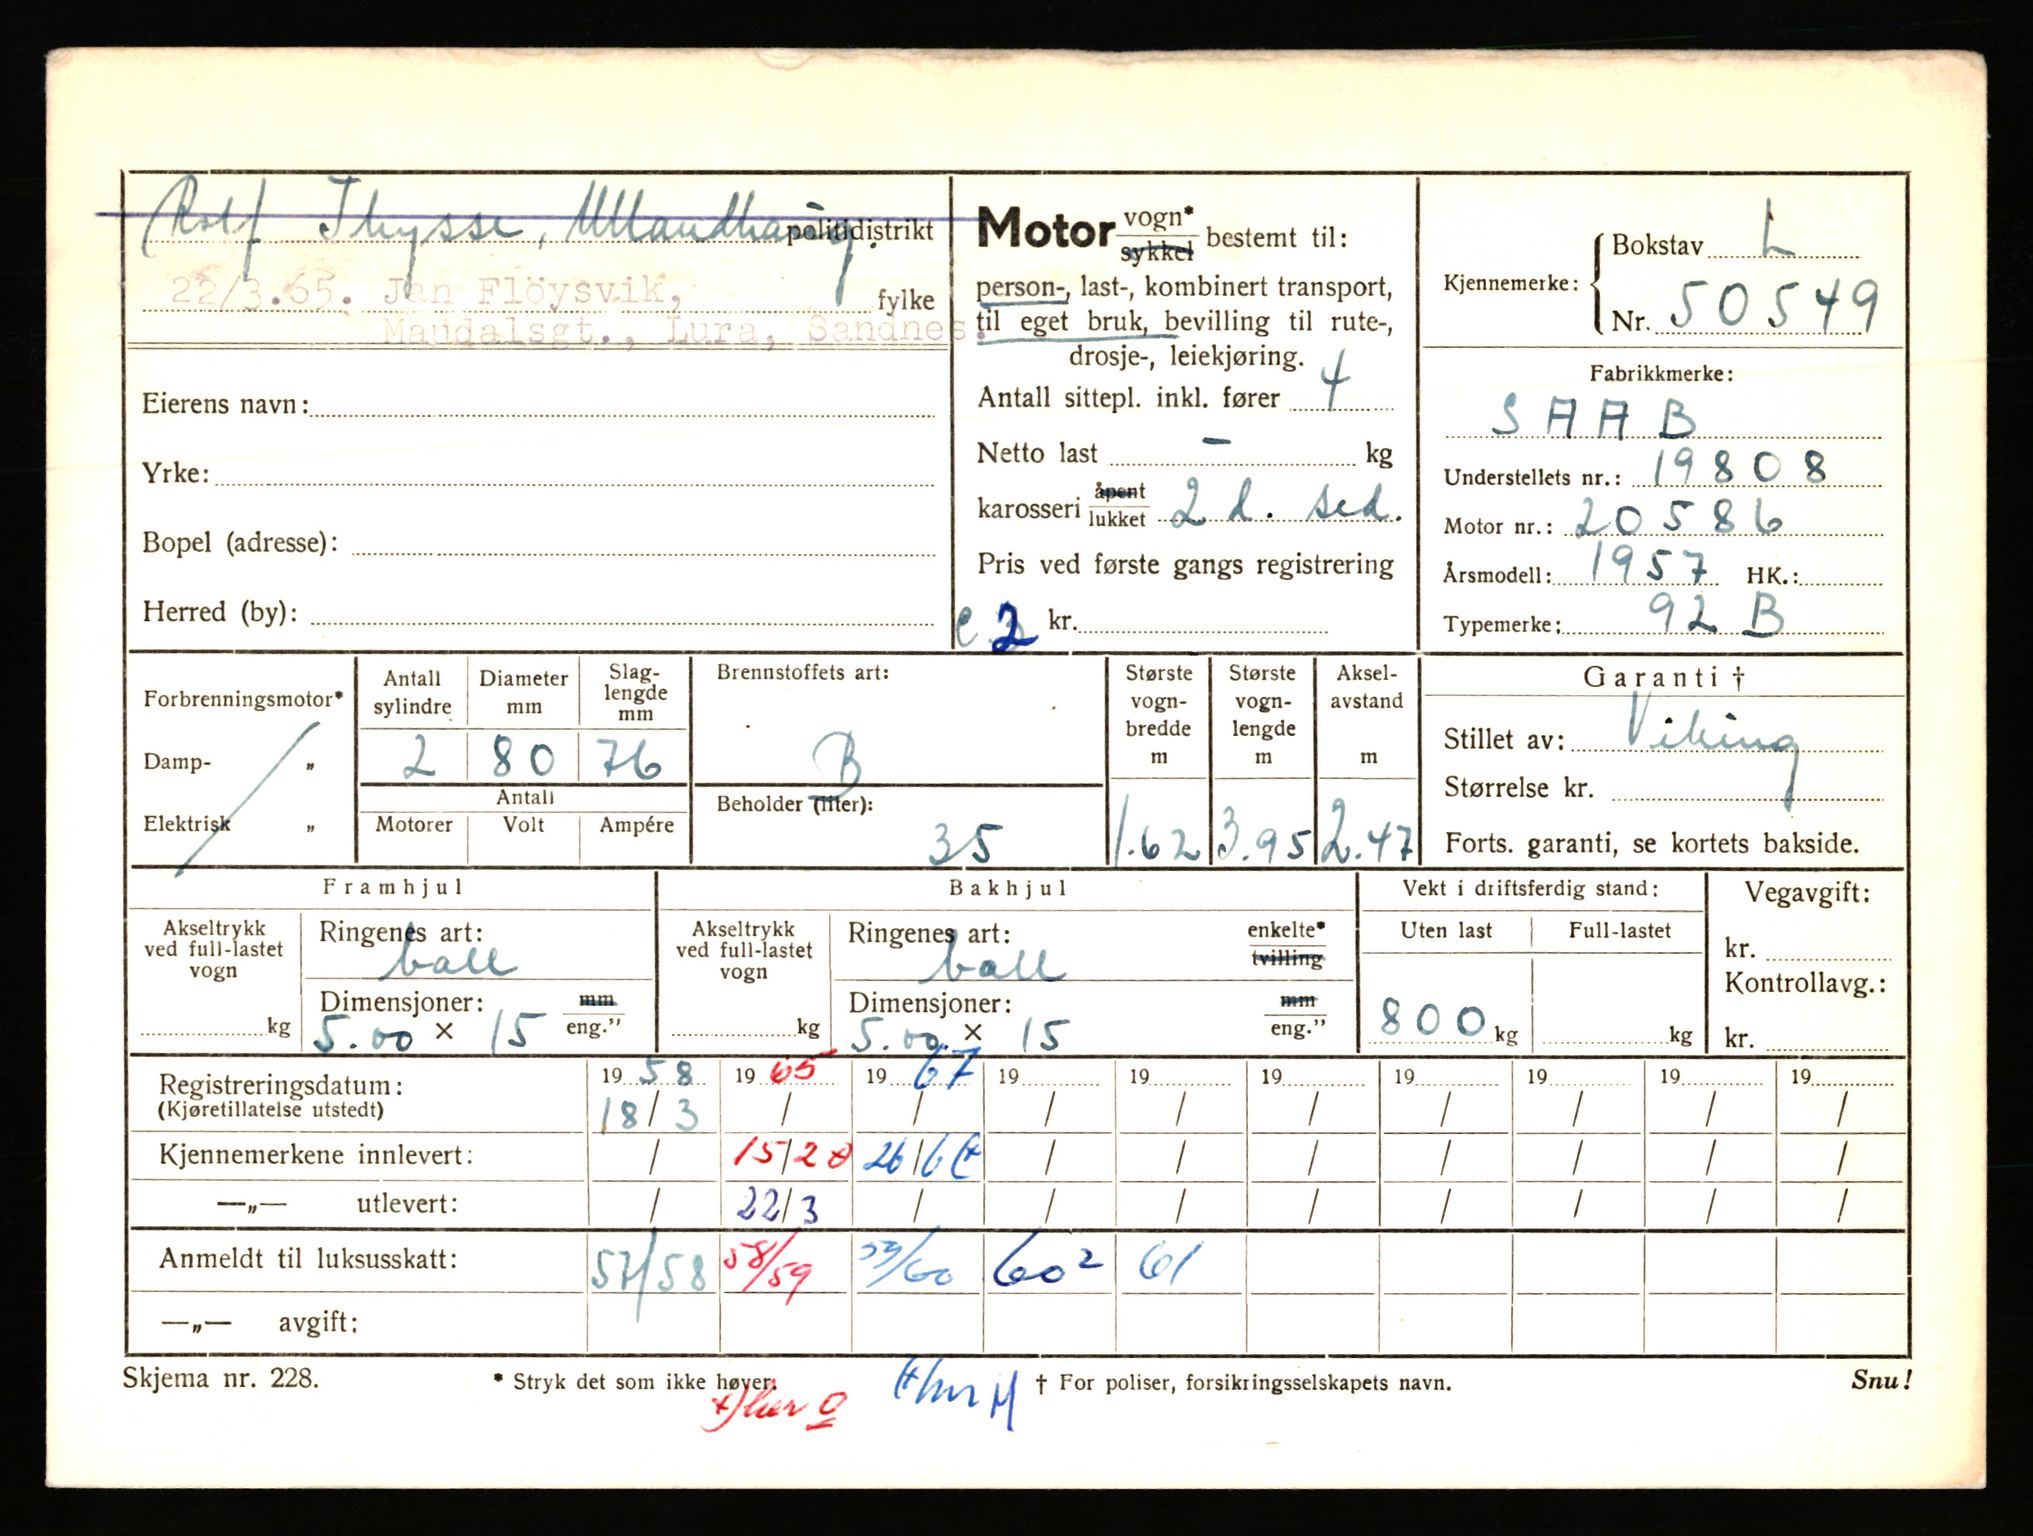 Rolf Thysse, Ullandhaug. politidistrikt
22/3.65. Jan Flöysvik, fylke
Maudalsgt., Lura, Sandnes.
Eierens navn:
Yrke:
Bopel (adresse):
Herred (by):
Motor vogn* sykkel bestemt til:
person-, last-, kombinert transport,
til eget bruk, bevilling til rute-,
drosje-, leiekjøring.
Antall sittepl. inkl. fører 4
Netto last – kg
karosseri åpent lukket 2 d. sed.
Pris ved første gangs registrering
c 2 kr.
Kjennemerke: Bokstav L
Nr. 50549
Fabrikkmerke:
SAAB
Understellets nr.: 19808
Motor nr.: 20586
Årsmodell: 1957 HK.:
Typemerke: 92 B
Forbrenningsmotor*
Damp- „
Elektrisk „
Antall sylindre
Diameter mm
Slag-lengde mm
2 80 76
Antall
Motorer Volt Ampére
Brennstoffets art:
B
Beholder (liter):
35
Største vogn-bredde m
1.62
Største vogn-lengde m
3.95
Aksel-avstand m
2.47
Garanti †
Stillet av: Viking
Størrelse kr.
Forts. garanti, se kortets bakside.
Framhjul
Akseltrykk ved full-lastet vogn
kg
Ringenes art:
ball
Dimensjoner: mm
5.00 × 15 eng."
Bakhjul
Akseltrykk ved full-lastet vogn
kg
Ringenes art: enkelte*
ball tvilling
Dimensjoner: mm
5.00 × 15 eng."
Vekt i driftsferdig stand:
Uten last Full-lastet
800 kg kg
Vegavgift:
kr.
Kontrollavg.:
kr.
Registreringsdatum: 1958 1965 1967 19 19 19 19 19 19 19
(Kjøretillatelse utstedt) 18/3 / / / / / / / / /
Kjennemerkene innlevert: / 15/2 26/6 / / / / / / /
—„— utlevert: / 22/3 / / / / / / / /
Anmeldt til luksusskatt: 57/58 58/59 /60 60² 61
—„— avgift:
Skjema nr. 228. * Stryk det som ikke høver. † For poliser, forsikringsselskapets navn. Snu!